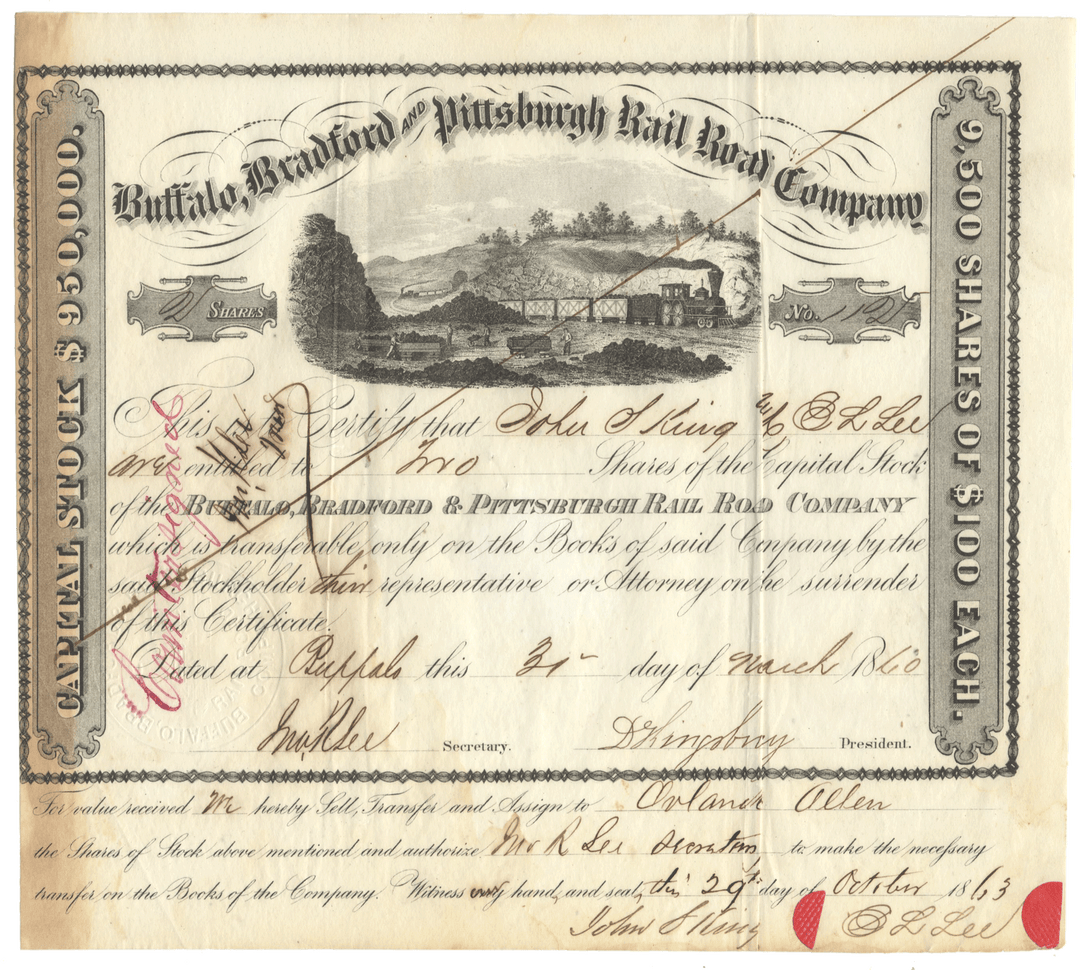 Buffalo, Bradford AND Pittsburgh Rail Road Company
CAPITAL STOCK $950,000.
9,500 SHARES OF $100 EACH.
2 SHARES
No. 1121
This Certify that John S King & E L Lee
are entitled to Two Shares of the Capital Stock
of the BUFFALO, BRADFORD & PITTSBURGH RAIL ROAD COMPANY
which is transferable only on the Books of said Company by the
said Stockholder their representative or Attorney on he surrender
of this Certificate.
Dated at Buffalo this 31st day of March 1860
Jno R Lee Secretary. D Kingsbury President.
For value received We hereby Sell, Transfer and Assign to Orlando Allen
the Shares of Stock above mentioned and authorize Jno R Lee Secretary to make the necessary
transfer on the Books of the Company. Witness our hand, and seal, this 29th day of October 1863
John S King E L Lee